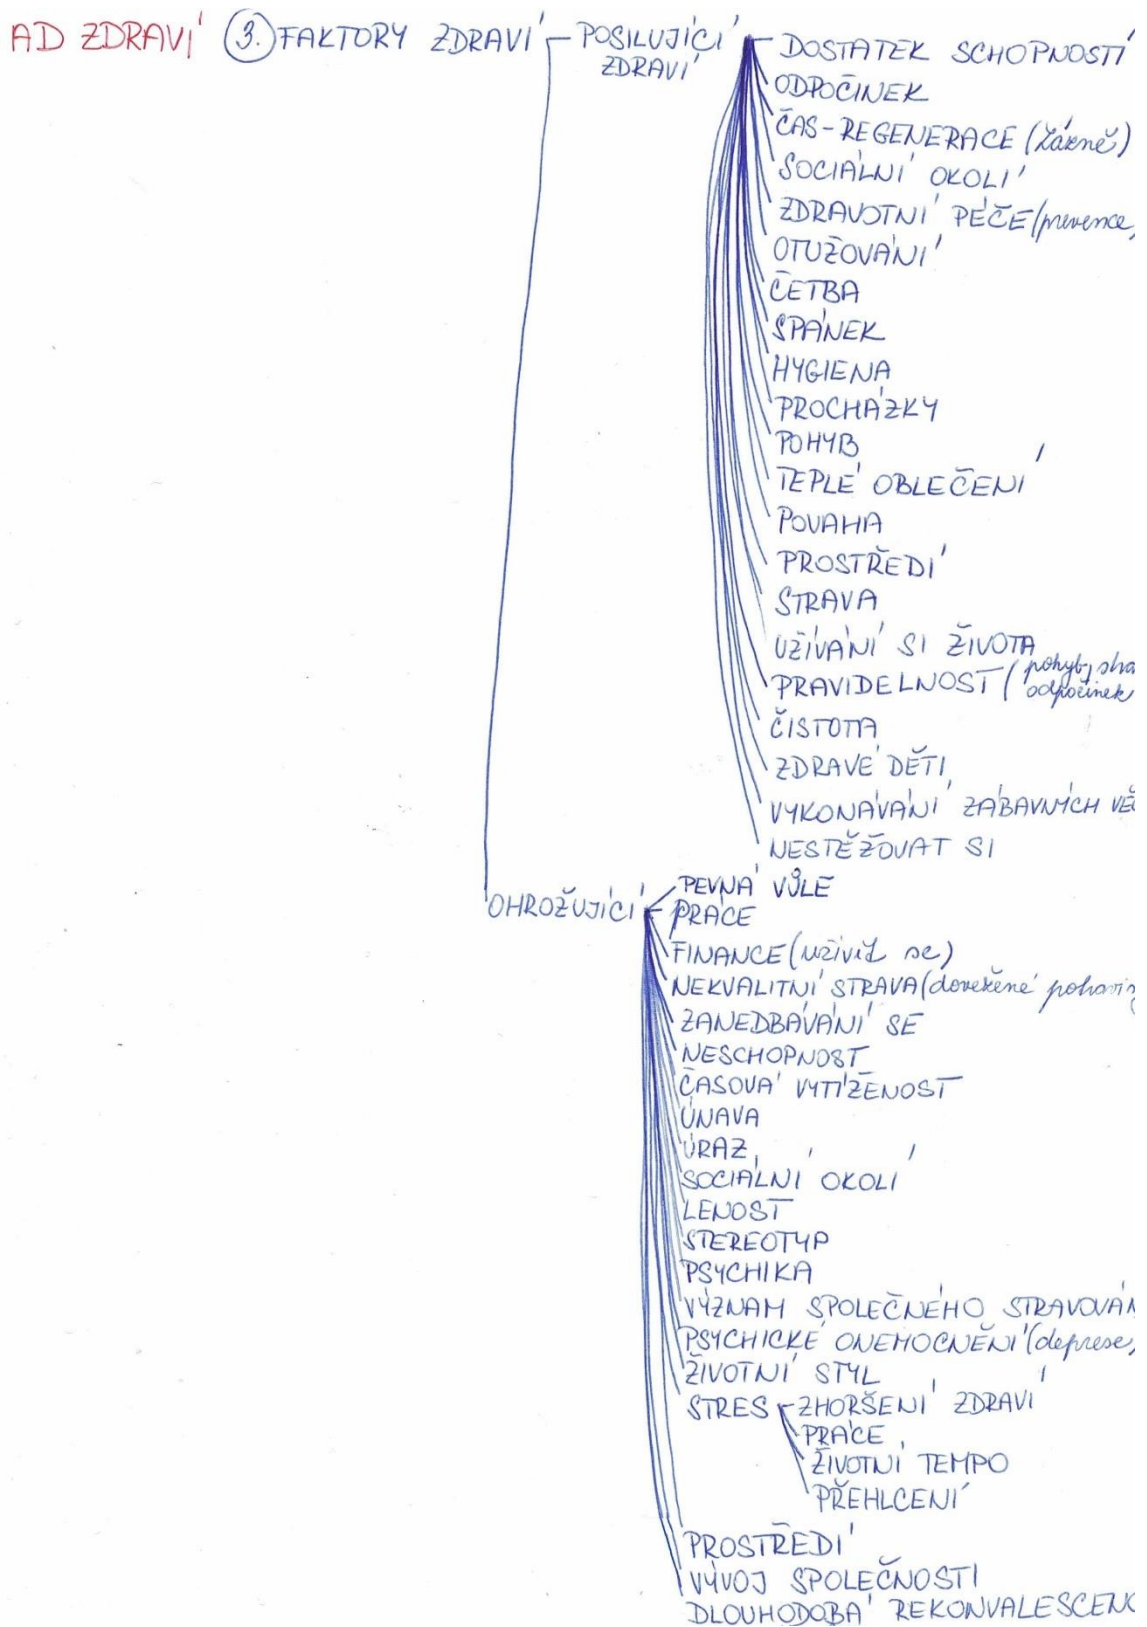 AD ZDRAVÍ 3. FAKTORY ZDRAVÍ POSILUJÍCÍ
ZDRAVÍ
DOSTATEK SCHOPNOSTÍ
ODPOČINEK
ČAS-REGENERACE (lázně)
SOCIÁLNÍ OKOLÍ
ZDRAVOTNÍ PÉČE (prevence,
OTUŽOVÁNÍ
ČETBA
SPÁNEK
HYGIENA
PROCHÁZKY
POHYB
TEPLÉ OBLEČENÍ
POVAHA
PROSTŘEDÍ
STRAVA
UŽÍVÁNÍ SI ŽIVOTA
PRAVIDELNOST (pohyb,
odpočinek
ČISTOTA
ZDRAVÉ DĚTI
VYKONÁVÁNÍ ZÁBAVNÝCH VĚ
NESTĚŽOVAT SI
OHROŽUJÍCÍ
PEVNÁ VŮLE
PRÁCE
FINANCE (uživit se)
NEKVALITNÍ STRAVA (dovežené potravin
ZANEDBÁVÁNÍ SE
NESCHOPNOST
ČASOVÁ VYTÍŽENOST
ÚNAVA
ÚRAZ
SOCIÁLNÍ OKOLÍ
LENOST
STEREOTYP
PSYCHIKA
VÝZNAM SPOLEČNÉHO STRAVOVÁN
PSYCHICKÉ ONEMOCNĚNÍ (deprese,
ŽIVOTNÍ STYL
STRES ZHORŠENÍ ZDRAVÍ
PRÁCE
ŽIVOTNÍ TEMPO
PŘEHLCENÍ
PROSTŘEDÍ
VÝVOJ SPOLEČNOSTI
DLOUHODOBÁ REKONVALESCENC